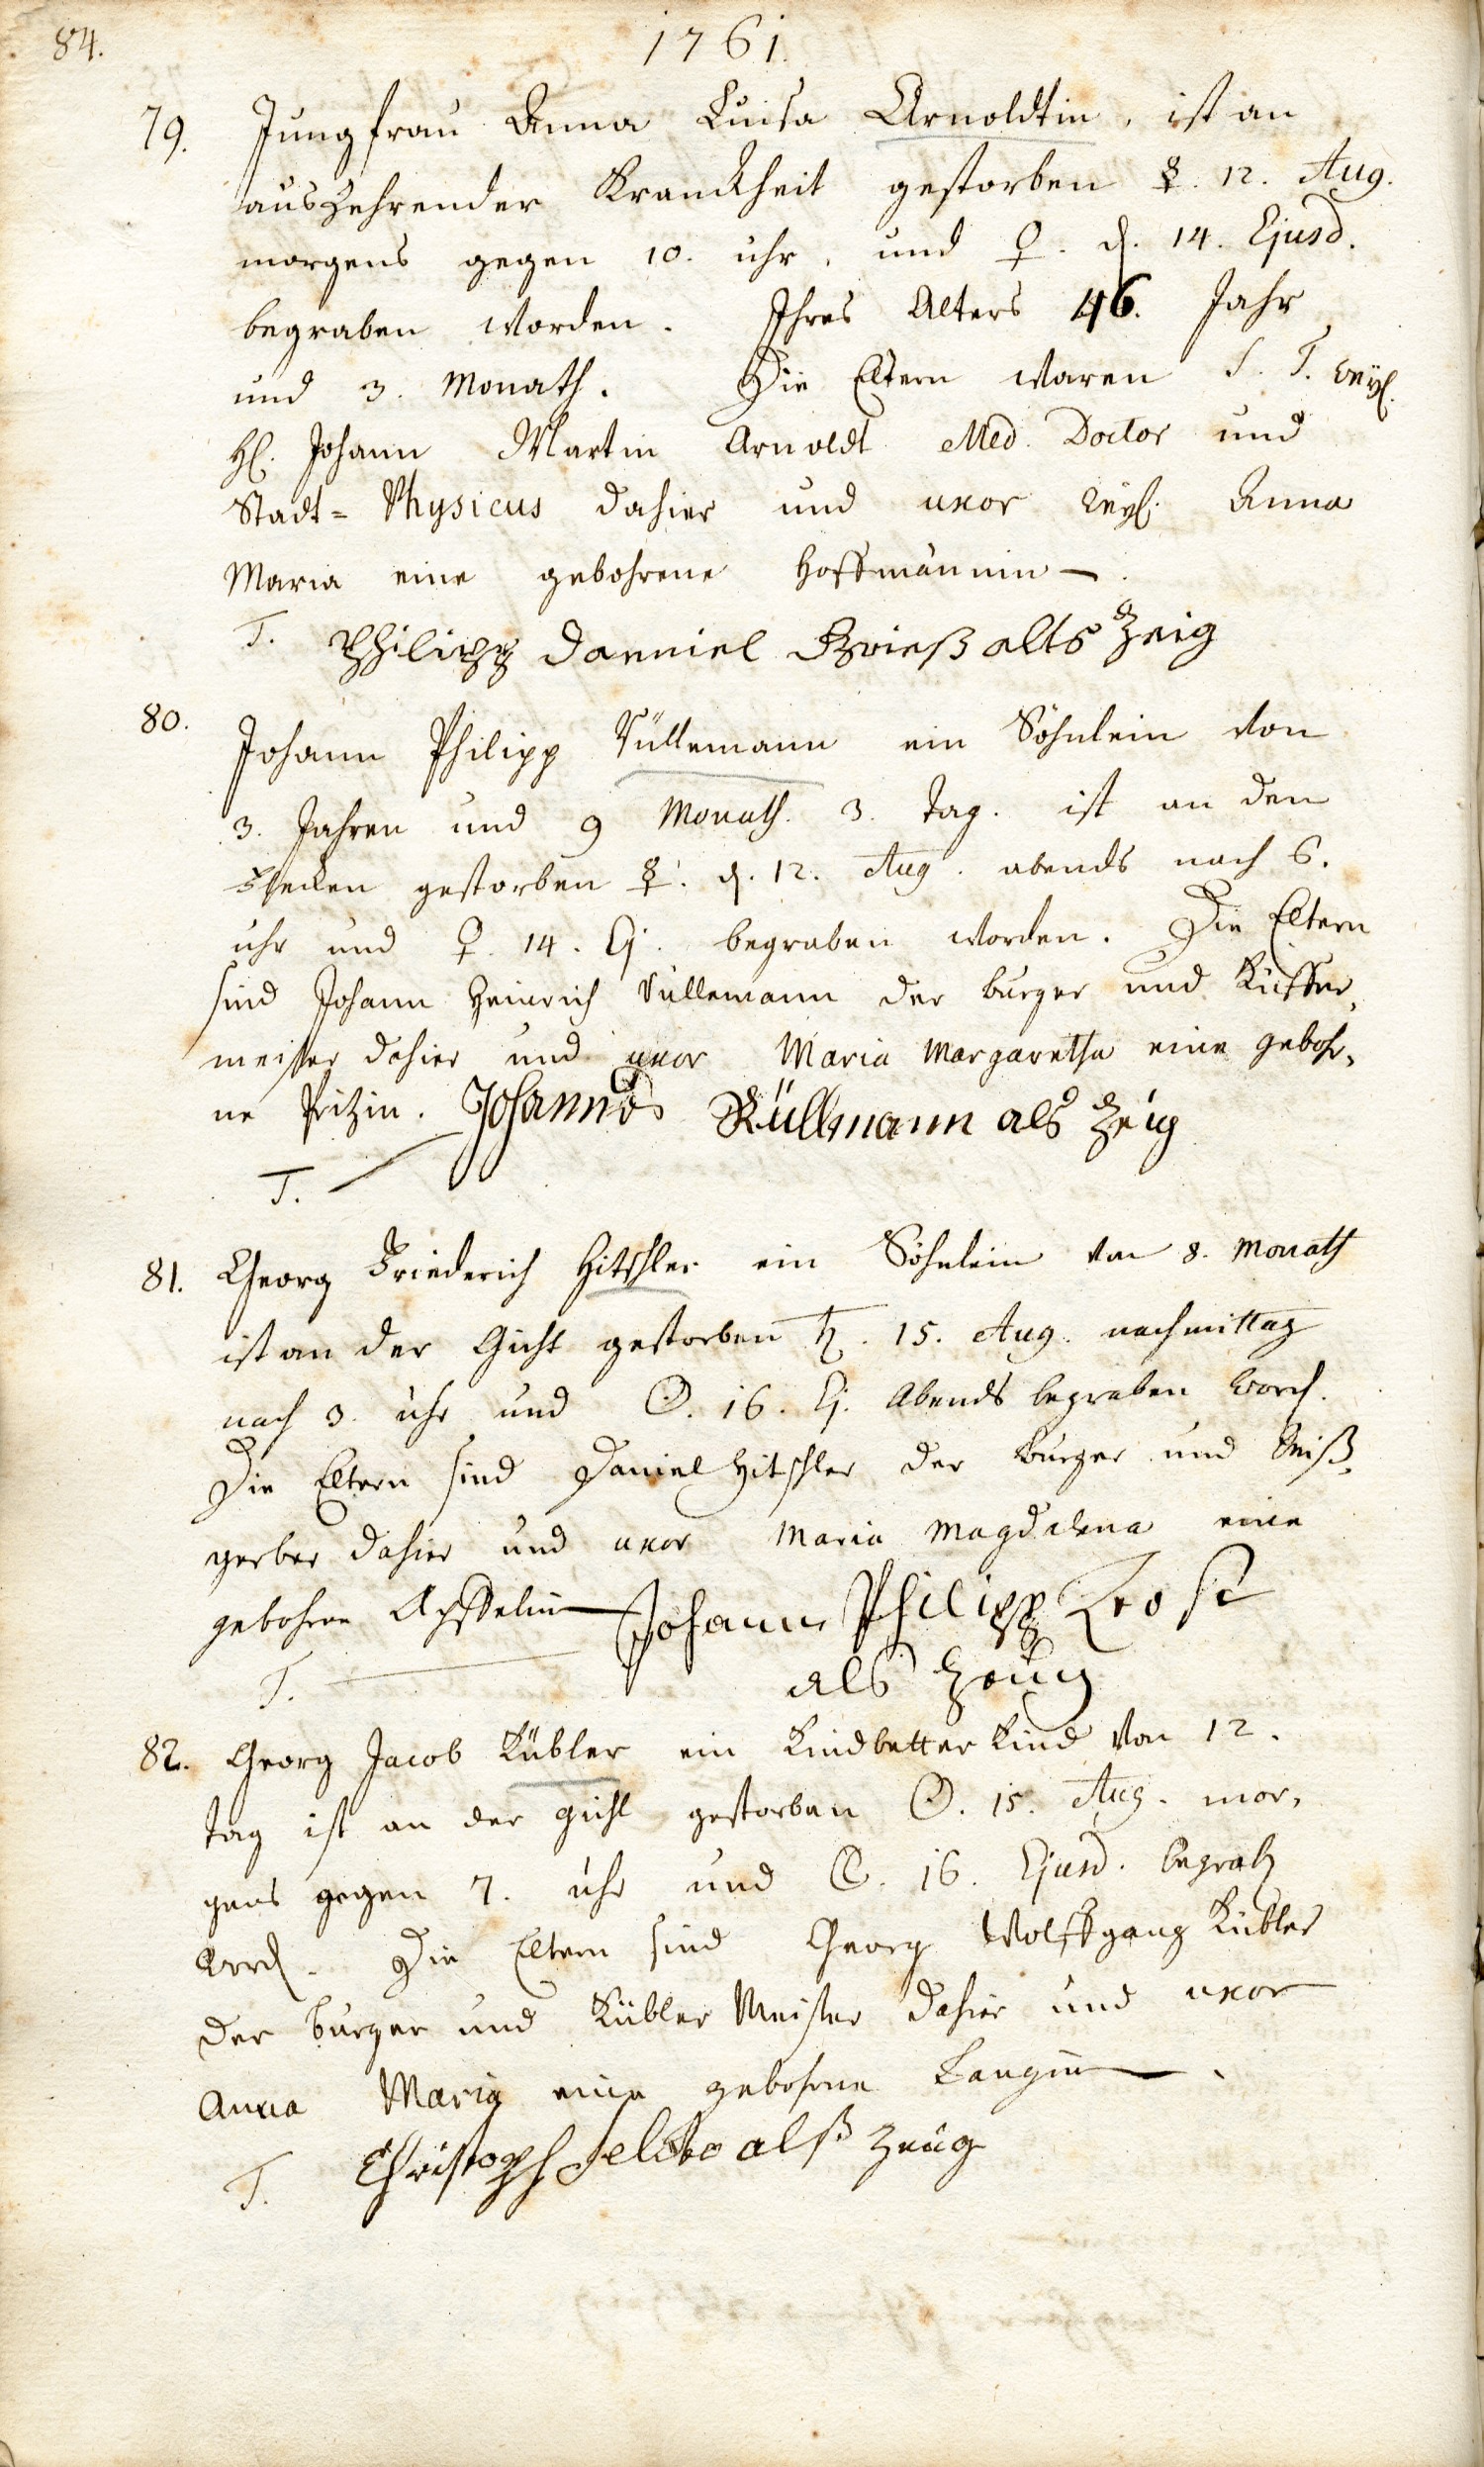 84.
1761.
79. Jungfrau Anna Luisa Arnoldtin, ist an
auszehrender Kranckheit gestorben ☿. 12. Aug.
morgens gegen 10. uhr, und ♀. d. 14. Ejusd.
begraben worden. Ihres Alters 46. Jahr
und 3. Monath. Die Eltern waren S. T. weyl.
H. Johann Martin Arnoldt Med. Doctor und
Stadt= Physicus dahier und uxor weyl. Anna
Maria eine gebohrene Hoffmännin.
T. Philipp Danniel alts Zeig
80. Johann Philipp Rüllemann ein Söhnlein von
3. Jahren und 9 Monath. 3. Tag. ist an den
Flecken gestorben ☿. d. 12. Aug. abends nach 6.
uhr und ♀. 14. Ej. begraben worden. Die Eltern
sind Johann Heinrich Rüllemann der burger und Kieffer,
meister dahier und uxor Maria Margaretha eine gebohr,
ne Fritzin. Johannes Rüllmann als Zeüg
T.
81. Georg Friederich Hitschler ein Söhnlein von 8. Monath
ist an der Gicht gestorben ♄. 15. Aug. nachmittag
nach 3. uhr und ☉. 16. Ej. Abends begraben word.
Die Eltern sind Daniel Hitschler der Burger und Weiß,
gerber dahier und uxor Maria Magdalena eine
gebohrne Johann Philipp
T. als Zeüg
82. Georg Jacob Kübler ein Kindbetter Kind von 12.
Tag ist an der Gicht gestorben ☉. 15. Aug. mor,
gens gegen 7. uhr und 16. Ejusd. begrab
word. Die Eltern sind Georg Wolffgang Kübler
der burger und Kübler Meister dahier und uxor
Anna Maria eine gebohrne Langin.
T. Christoph alß Zeüg